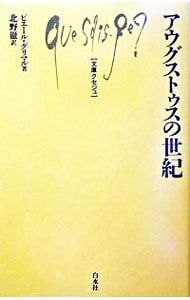 アウグストゥスの世紀
que sais-je?
ピエール・グリマル著
北野徹訳
【文庫クセジュ】
白水社